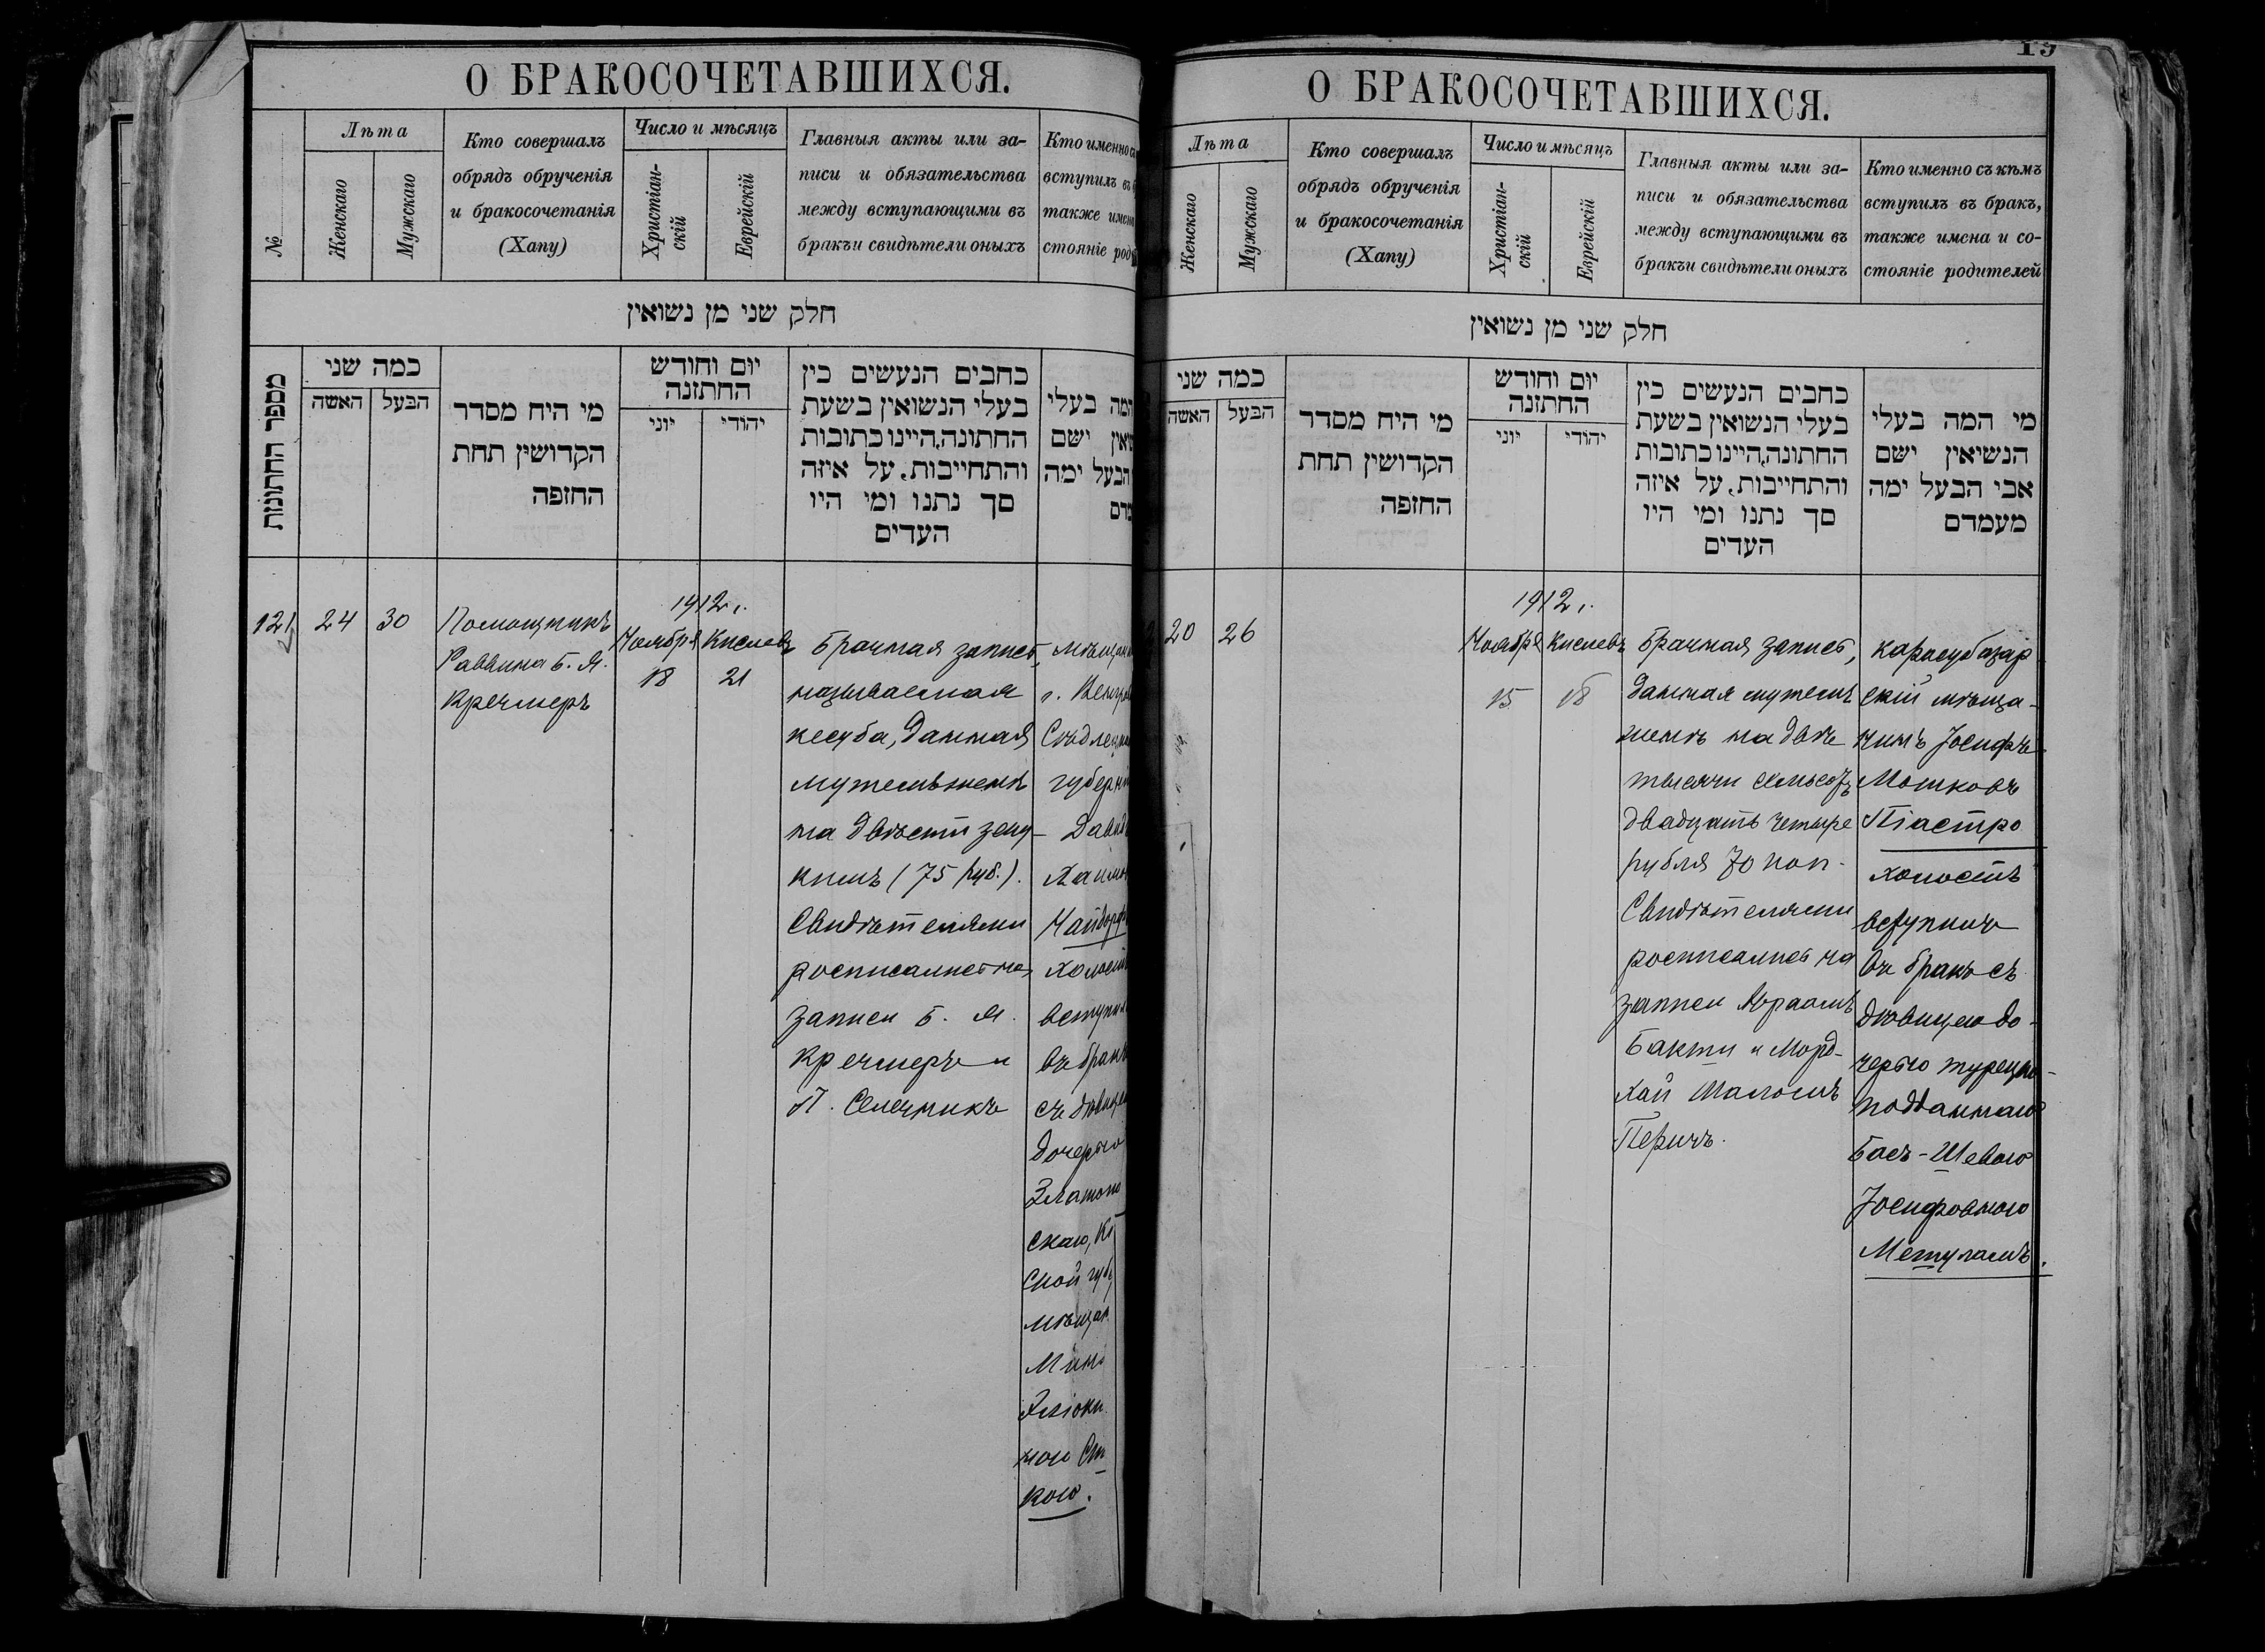 О БРАКОСОЧЕТАВШИХСЯ.
№
Лѣта
Женскаго
Мужскаго
Кто совершалъ
обрядъ обрученія
и бракосочетанія
(Хапу)
Число и мѣсяцъ
Христіан-
скій
Еврейскій
Главныя акты или за-
писи и обязательства
между вступающими въ
бракъи свидѣтели оныхъ
Кто именно
вступилъ въ
также
стояніе
חלק שני מן נשואין
מספר החתונות
כמה שני
האשה
הבעל
מי היח מסדר
הקדושין תחת
החזפה
יום וחודש
החתזנה
יוני
יהודי
כחבים הנעשים כין
בעלי הנשואין בשעת
החתונה,היינו כתובות
והתחייבות, על איזה
סך נתנו ומי היו
העדים
המה בעלי
ישם
הבעל ימה
121
24
30
Помощникъ
Раввина Б. Я.
Кречмеръ
1912 г.
Ноября
18
Кислевъ
21
Брачная запись,
называемая
кесуба, данная
мужемъ женѣ
на двѣсти злу-
кимъ (75 руб.).
Свидѣтелями
росписались на
записи Б. Я.
Кречмеръ и
П. Селечникъ
г.
Хаимо
вступил
въ бракъ
съ
дочерью
Злато
ской
кою.
19
О БРАКОСОЧЕТАВШИХСЯ.
Лѣта
Женскаго
Мужскаго
Кто совершалъ
обрядъ обрученія
и бракосочетанія
(Хапу)
Число и мѣсяцъ
Христіан-
скій
Еврейскій
Главныя акты или за-
писи и обязательства
между вступающими въ
бракъи свидѣтели оныхъ
Кто именно съ кѣмъ
вступилъ въ бракъ,
также имена и со-
стояніе родителей
חלק שני מן נשואין
כמה שני
האשה
הבעל
מי היח מסדר
הקדושין תחת
החזפה
יום וחודש
החתזנה
יוני
יהודי
כחבים הנעשים כין
בעלי הנשואין בשעת
החתונה,היינו כתובות
והתחייבות, על איזה
סך נתנו ומי היו
העדים
מי המה בעלי
הנשיאין ישם
אבי הבעל ימה
מעמדם
20
26
1912 г.
Ноября
15
Кислевъ
18
Брачная запись,
данная мужемъ
женѣ на двѣ
тысячи семьсотъ
двадцать четыре
рубля 70 коп.
Свидѣтелями
росписались на
записи Авраамъ
Бакши и Морд-
хай Шаломъ
Перичъ.
карасубазар-
скій мѣща-
нинъ Іосифъ
Мошковъ
Піастро
холостъ
вступилъ
въ бракъ съ
дѣвицею до-
черью турецко-
подданнаго
Бась-Шевою
Іосифовною
Мешуламъ.